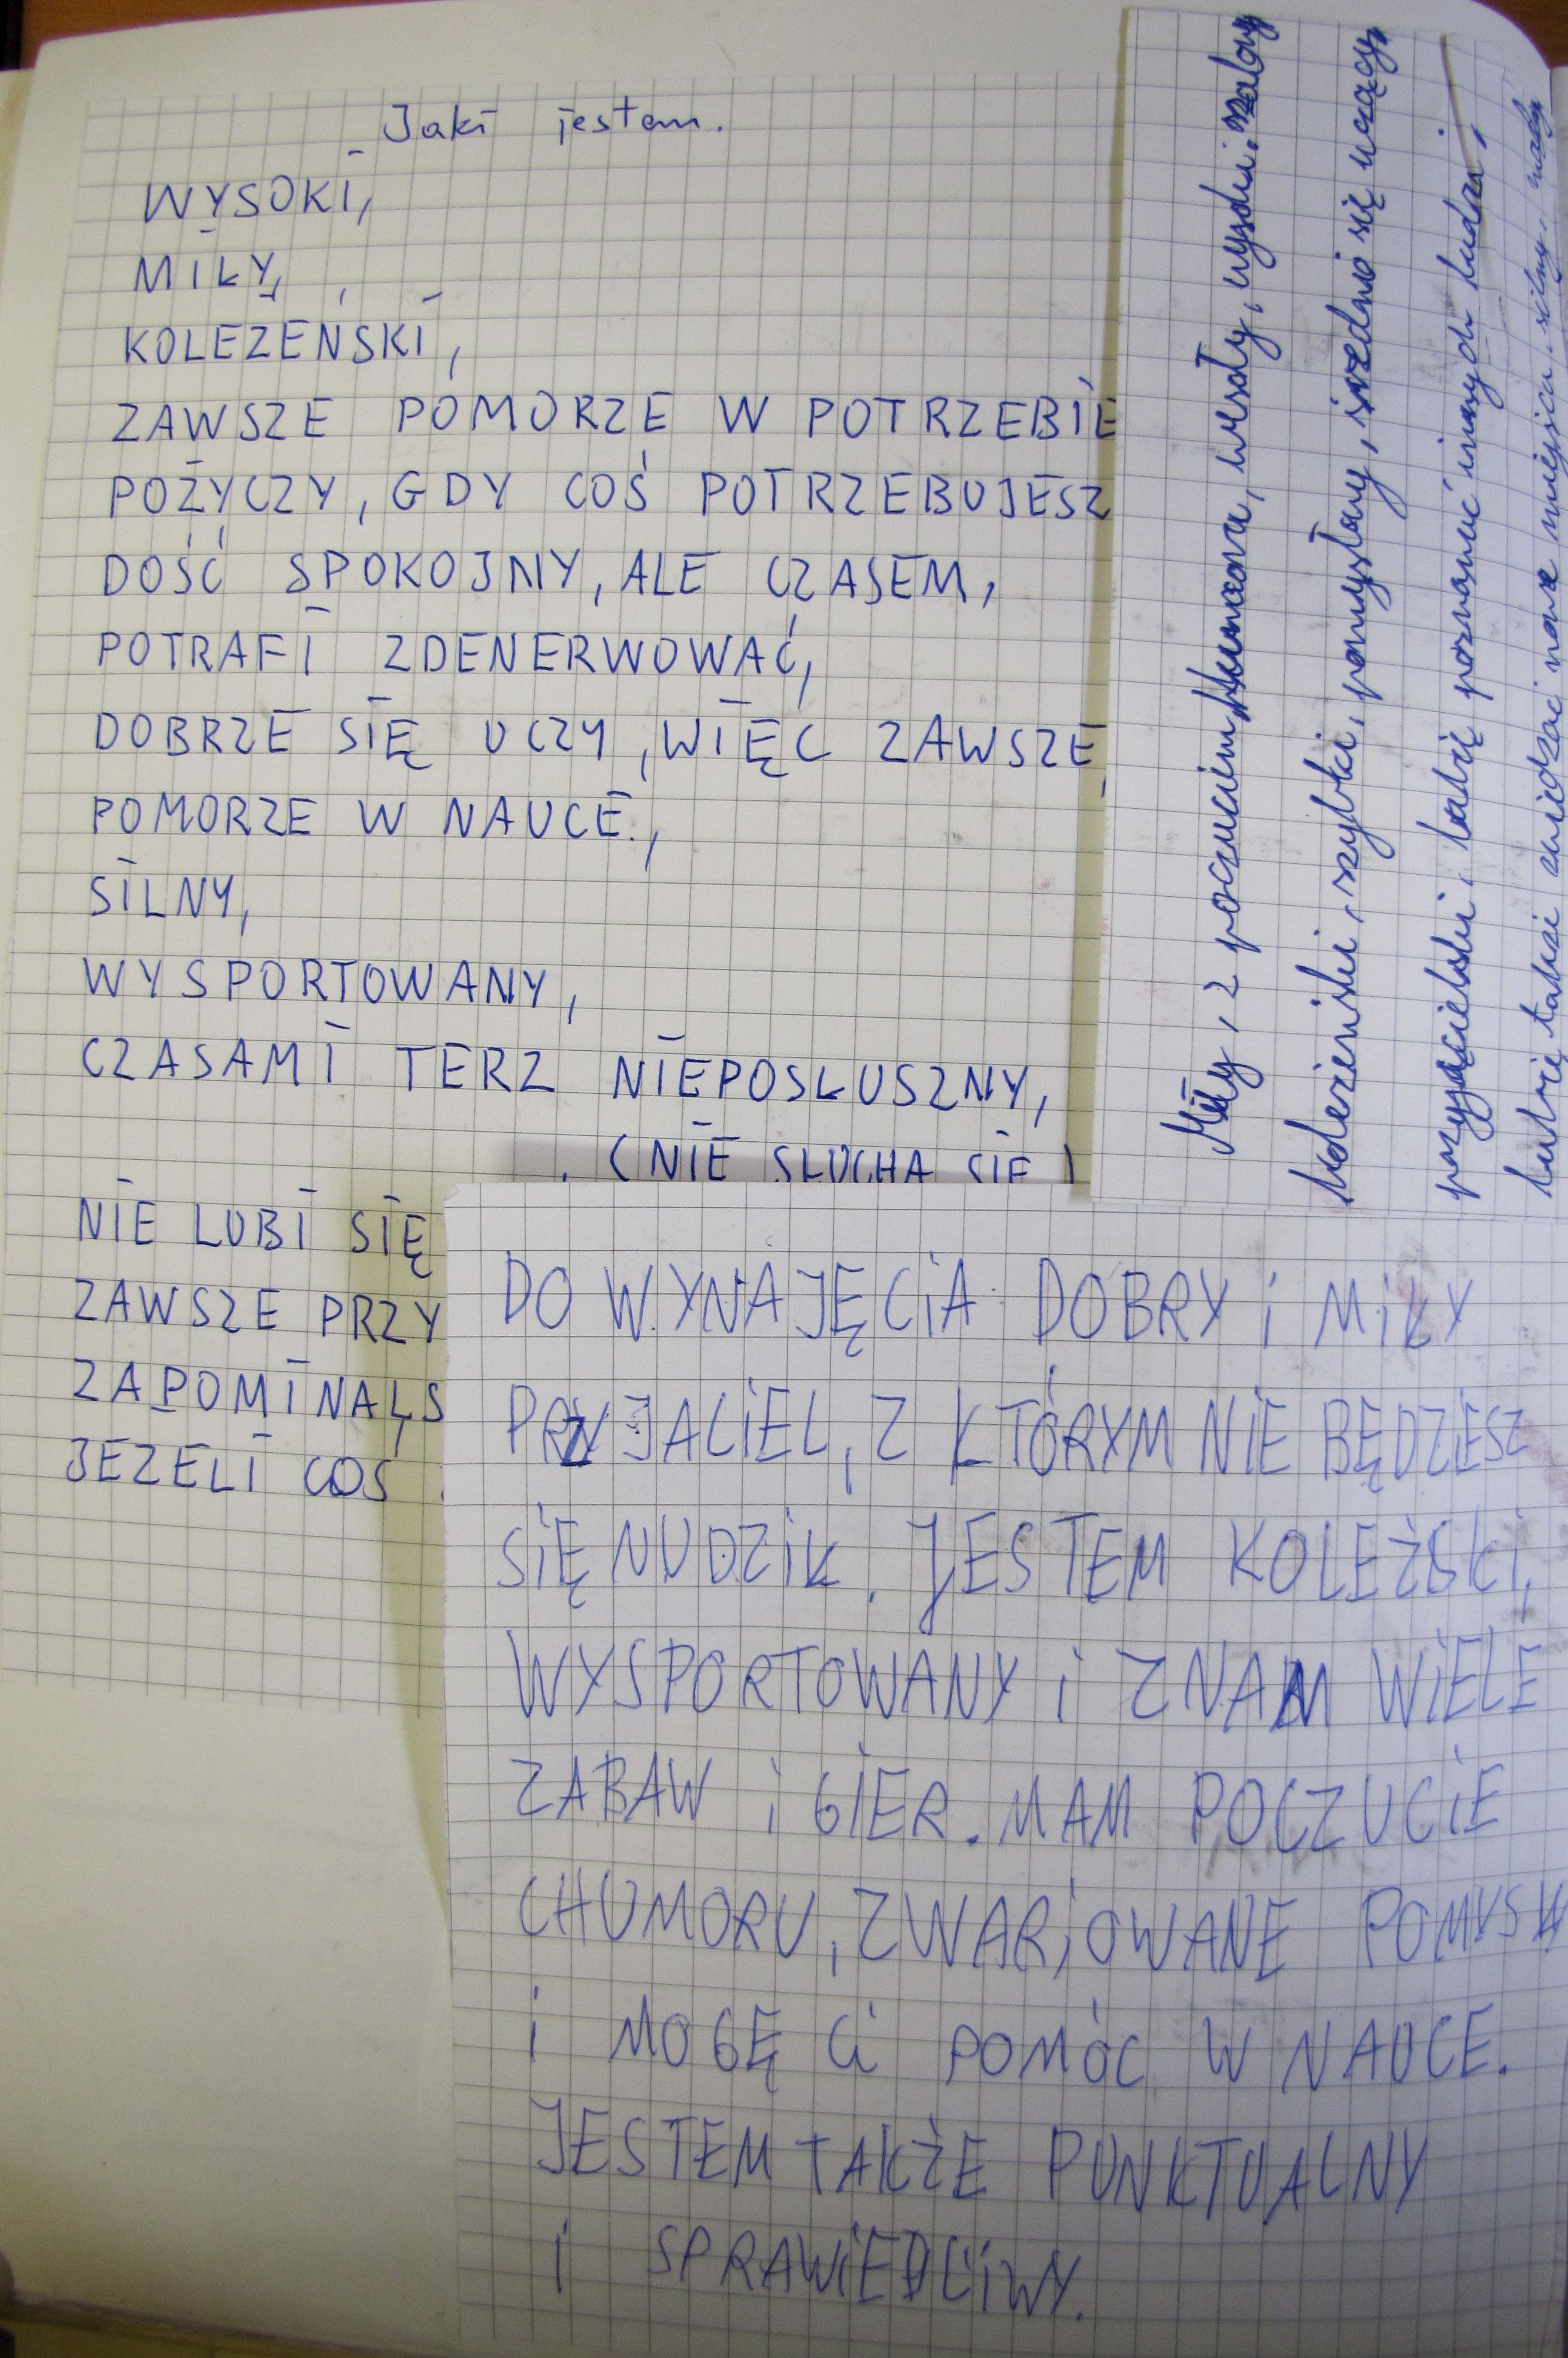 Jaki jestem.
WYSOKI,
MIŁY,
KOLEŻEŃSKI,
ZAWSZE POMORZE W POTRZEBIE
POŻYCZY, GDY COŚ POTRZEBUJESZ
DOŚĆ SPOKOJNY, ALE CZASEM,
POTRAFI ZDENERWOWAĆ,
DOBRZE SIĘ UCZY, WIĘC ZAWSZE
POMORZE W NAUCE.,
SILNY,
WYSPORTOWANY,
CZASAMI TERZ NIEPOSŁUSZNY,
(NIE SŁUCHA SIE)
NIE LUBI SIĘ
ZAWSZE PRZY
ZAPOMINALS
JEZELI COŚ
Miły, z poczuciem humoru, wesoły, wysoki,
koleżeński, szybki, pomysłowy, średnio się uczący
przyjacielski, lubię poznawać innych ludzi,
lubię także zwiedzać nowe miejsca, silny,
DO WYNAJĘCIA DOBRY i MiŁY
PRZYJACIEL, Z KTÓRYM NIE BĘDZIESZ
SIĘ NUDZIŁ. JESTEM KOLEŻSKI,
WYSPORTOWANY i ZNAM WIELE
ZABAW i GIER. MAM POCZUCIE
CHUMORU, ZWARJOWANE POMYSŁY
i MOGĘ Ci POMÓC W NAUCE.
JESTEM TAKŻE PUNKTUALNY
i SPRAWIEDLIWY.